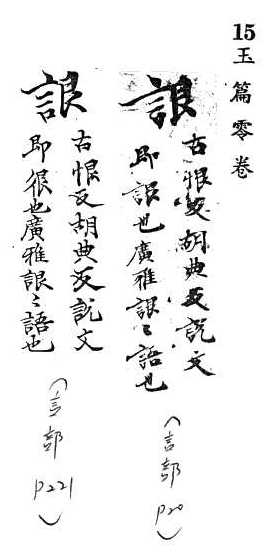 15玉篇零卷
詪
古恨反胡典反說文
即詪也廣雅詪〻語也
(言部 P20)
詪
古恨反胡典反說文
即很也廣雅詪〻語也
(言部 P221)